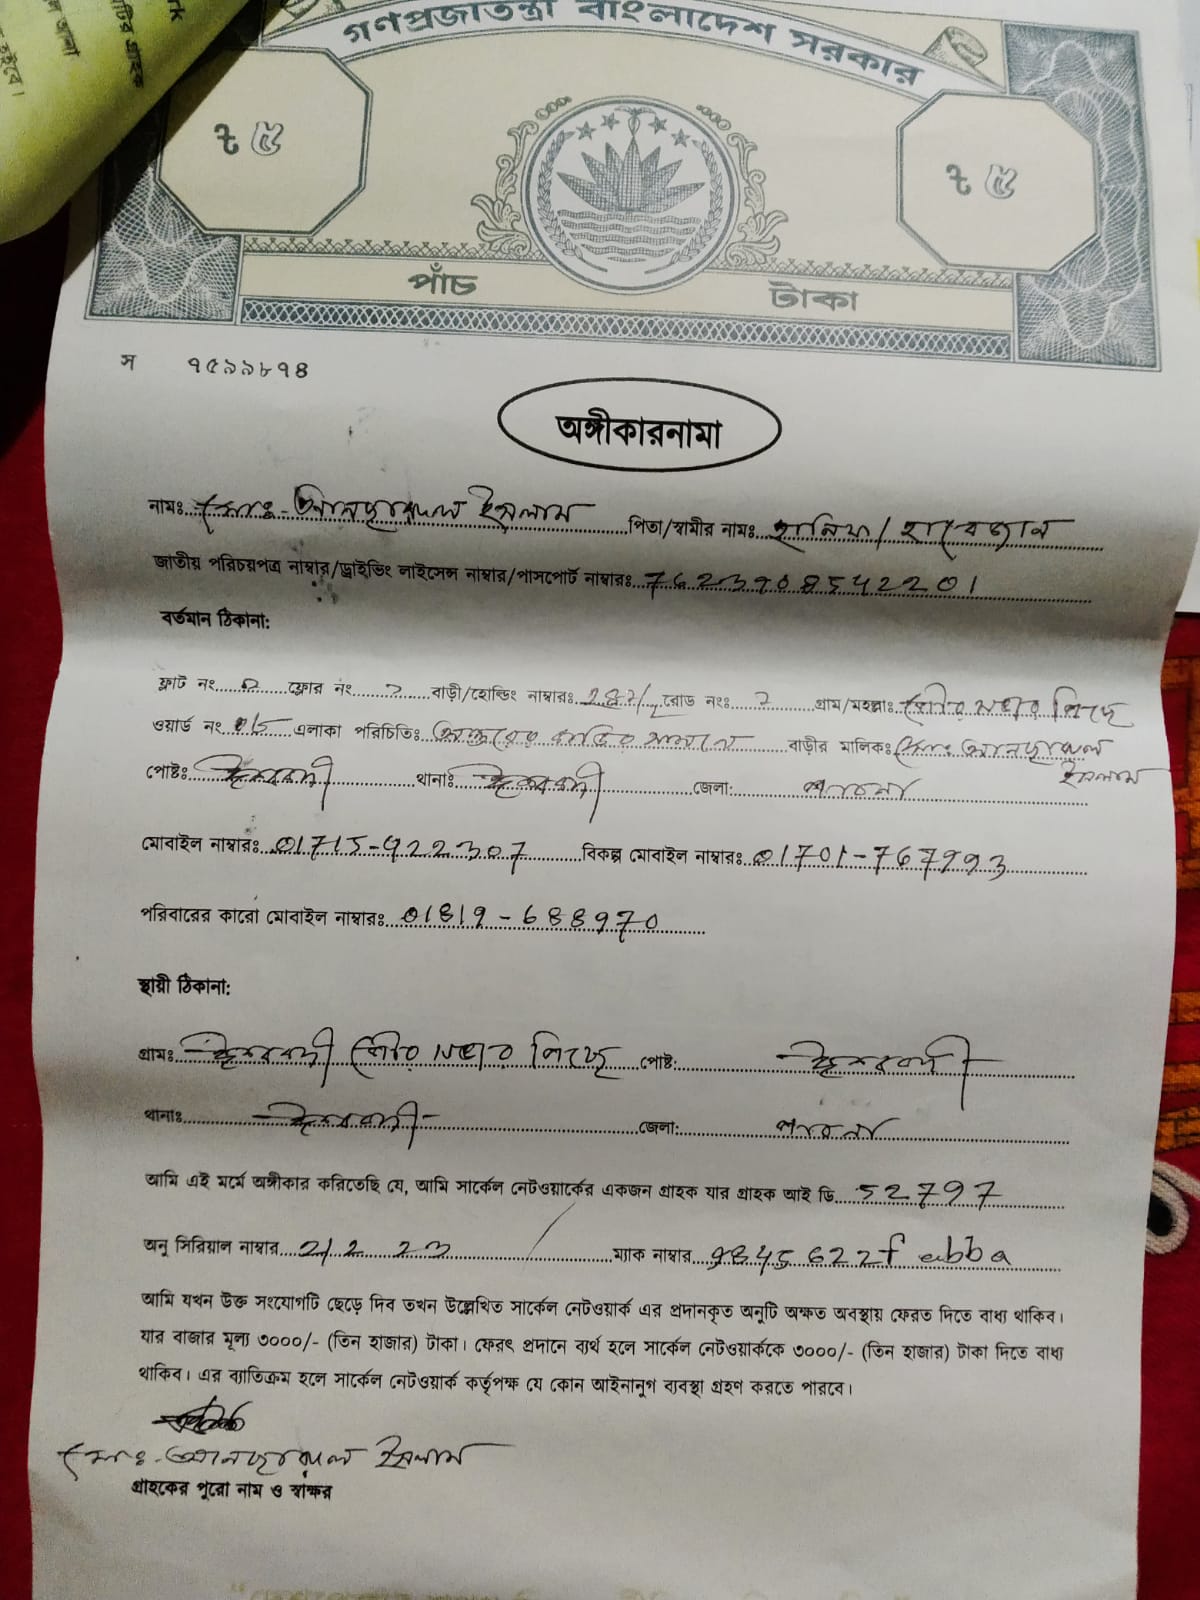 rk
টির গ্রাহক
হইবে।
গণপ্রজাতন্ত্রী বাংলাদেশ সরকার
৳ ৫
৳ ৫
পাঁচ টাকা
স ৭৫৯৯৮৭৪
অঙ্গীকারনামা
নামঃ মোঃ আনছারুল ইসলাম পিতা/স্বামীর নামঃ হানিফ/
জাতীয় পরিচয়পত্র নাম্বার/ড্রাইভিং লাইসেন্স নাম্বার/পাসপোর্ট নাম্বারঃ
বর্তমান ঠিকানা:
ফ্লাট নং ফ্লোর নং বাড়ী/হোল্ডিং নাম্বারঃ রোড নংঃ গ্রাম/মহল্লাঃ
ওয়ার্ড নং 05 এলাকা পরিচিতিঃ বাড়ীর মালিকঃ মোঃ আনছারুল ইসলাম
পোষ্টঃ ঈশ্বরদী থানাঃ ঈশ্বরদী জেলা: পাবনা
মোবাইল নাম্বারঃ 01715-922307 বিকল্প মোবাইল নাম্বারঃ
পরিবারের কারো মোবাইল নাম্বারঃ 01819-688970
স্থায়ী ঠিকানা:
গ্রামঃ ঈশ্বরদী পোষ্ট: ঈশ্বরদী
থানাঃ ঈশ্বরদী জেলা: পাবনা
আমি এই মর্মে অঙ্গীকার করিতেছি যে, আমি সার্কেল নেটওয়ার্কের একজন গ্রাহক যার গ্রাহক আই ডি 52797
অনু সিরিয়াল নাম্বার ম্যাক নাম্বার
আমি যখন উক্ত সংযোগটি ছেড়ে দিব তখন উল্লেখিত সার্কেল নেটওয়ার্ক এর প্রদানকৃত অনুটি অক্ষত অবস্থায় ফেরত দিতে বাধ্য থাকিব।
যার বাজার মূল্য ৩০০০/- (তিন হাজার) টাকা। ফেরৎ প্রদানে ব্যর্থ হলে সার্কেল নেটওয়ার্ককে ৩০০০/- (তিন হাজার) টাকা দিতে বাধ্য
থাকিব। এর ব্যতিক্রম হলে সার্কেল নেটওয়ার্ক কর্তৃপক্ষ যে কোন আইনানুগ ব্যবস্থা গ্রহণ করতে পারবে।
মোঃ আনছারুল ইসলাম
গ্রাহকের পুরো নাম ও স্বাক্ষর